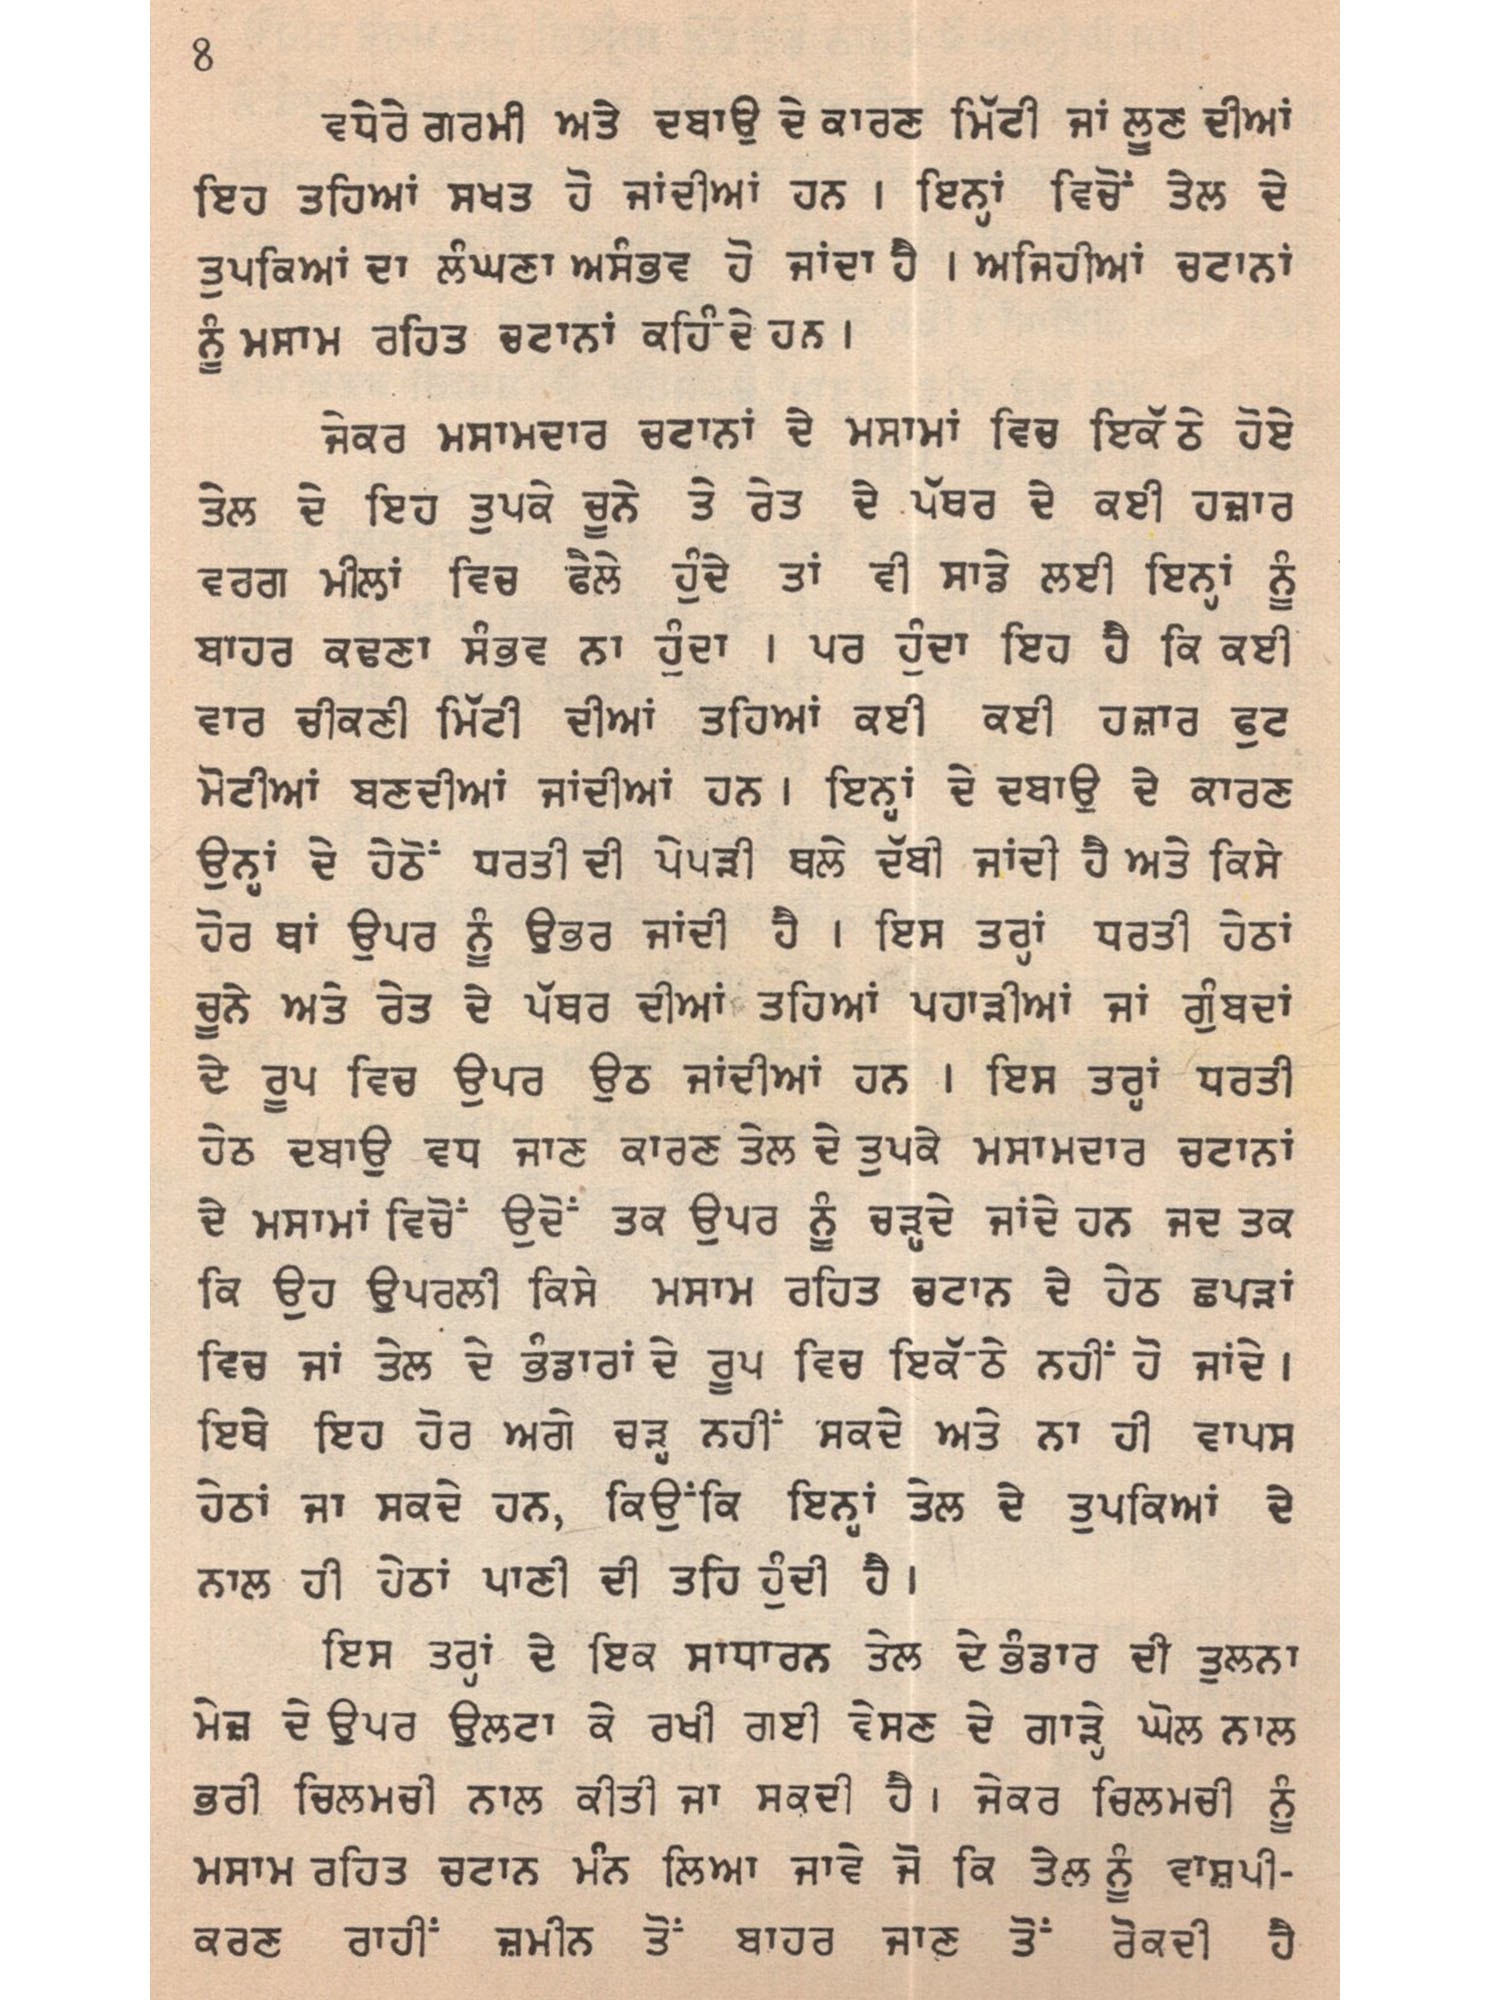 8
ਵਧੇਰੇ ਗਰਮੀ ਅਤੇ ਦਬਾਉ ਦੇ ਕਾਰਣ ਮਿੱਟੀ ਜਾਂ ਲੂਣ ਦੀਆਂ
ਇਹ ਤਹਿਆਂ ਸਖਤ ਹੋ ਜਾਂਦੀਆਂ ਹਨ । ਇਨ੍ਹਾਂ ਵਿਚੋਂ ਤੇਲ ਦੇ
ਤੁਪਕਿਆਂ ਦਾ ਲੰਘਣਾ ਅਸੰਭਵ ਹੋ ਜਾਂਦਾ ਹੈ । ਅਜਿਹੀਆਂ ਚਟਾਨਾਂ
ਨੂੰ ਮਸਾਮ ਰਹਿਤ ਚਟਾਨਾਂ ਕਹਿੰਦੇ ਹਨ ।
ਜੇਕਰ ਮਸਾਮਦਾਰ ਚਟਾਨਾਂ ਦੇ ਮਸਾਮਾਂ ਵਿਚ ਇਕੱਠੇ ਹੋਏ
ਤੇਲ ਦੇ ਇਹ ਤੁਪਕੇ ਚੂਨੇ ਤੇ ਰੇਤ ਦੇ ਪੱਥਰ ਦੇ ਕਈ ਹਜ਼ਾਰ
ਵਰਗ ਮੀਲਾਂ ਵਿਚ ਫੈਲੇ ਹੁੰਦੇ ਤਾਂ ਵੀ ਸਾਡੇ ਲਈ ਇਨ੍ਹਾਂ ਨੂੰ
ਬਾਹਰ ਕਢਣਾ ਸੰਭਵ ਨਾ ਹੁੰਦਾ । ਪਰ ਹੁੰਦਾ ਇਹ ਹੈ ਕਿ ਕਈ
ਵਾਰ ਚੀਕਣੀ ਮਿੱਟੀ ਦੀਆਂ ਤਹਿਆਂ ਕਈ ਕਈ ਹਜ਼ਾਰ ਫੁਟ
ਮੋਟੀਆਂ ਬਣਦੀਆਂ ਜਾਂਦੀਆਂ ਹਨ । ਇਨ੍ਹਾਂ ਦੇ ਦਬਾਉ ਦੇ ਕਾਰਣ
ਉਨ੍ਹਾਂ ਦੇ ਹੇਠੋਂ ਧਰਤੀ ਦੀ ਪੇਪੜੀ ਥਲੇ ਦੱਬੀ ਜਾਂਦੀ ਹੈ ਅਤੇ ਕਿਸੇ
ਹੋਰ ਥਾਂ ਉਪਰ ਨੂੰ ਉਭਰ ਜਾਂਦੀ ਹੈ । ਇਸ ਤਰ੍ਹਾਂ ਧਰਤੀ ਹੇਠਾਂ
ਚੂਨੇ ਅਤੇ ਰੇਤ ਦੇ ਪੱਥਰ ਦੀਆਂ ਤਹਿਆਂ ਪਹਾੜੀਆਂ ਜਾਂ ਗੁੰਬਦਾਂ
ਦੇ ਰੂਪ ਵਿਚ ਉਪਰ ਉਠ ਜਾਂਦੀਆਂ ਹਨ । ਇਸ ਤਰ੍ਹਾਂ ਧਰਤੀ
ਹੇਠ ਦਬਾਉ ਵਧ ਜਾਣ ਕਾਰਣ ਤੇਲ ਦੇ ਤੁਪਕੇ ਮਸਾਮਦਾਰ ਚਟਾਨਾਂ
ਦੇ ਮਸਾਮਾਂ ਵਿਚੋਂ ਉਦੋਂ ਤਕ ਉਪਰ ਨੂੰ ਚੜ੍ਹਦੇ ਜਾਂਦੇ ਹਨ ਜਦ ਤਕ
ਕਿ ਉਹ ਉਪਰਲੀ ਕਿਸੇ ਮਸਾਮ ਰਹਿਤ ਚਟਾਨ ਦੇ ਹੇਠ ਛਪੜਾਂ
ਵਿਚ ਜਾਂ ਤੇਲ ਦੇ ਭੰਡਾਰਾਂ ਦੇ ਰੂਪ ਵਿਚ ਇਕੱਠੇ ਨਹੀਂ ਹੋ ਜਾਂਦੇ ।
ਇਥੇ ਇਹ ਹੋਰ ਅਗੇ ਚੜ੍ਹ ਨਹੀਂ ਸਕਦੇ ਅਤੇ ਨਾ ਹੀ ਵਾਪਸ
ਹੇਠਾਂ ਜਾ ਸਕਦੇ ਹਨ, ਕਿਉਂਕਿ ਇਨ੍ਹਾਂ ਤੇਲ ਦੇ ਤੁਪਕਿਆਂ ਦੇ
ਨਾਲ ਹੀ ਹੇਠਾਂ ਪਾਣੀ ਦੀ ਤਹਿ ਹੁੰਦੀ ਹੈ ।
ਇਸ ਤਰ੍ਹਾਂ ਦੇ ਇਕ ਸਾਧਾਰਨ ਤੇਲ ਦੇ ਭੰਡਾਰ ਦੀ ਤੁਲਨਾ
ਮੇਜ਼ ਦੇ ਉਪਰ ਉਲਟਾ ਕੇ ਰਖੀ ਗਈ ਵੇਸਣ ਦੇ ਗਾੜ੍ਹੇ ਘੋਲ ਨਾਲ
ਭਰੀ ਚਿਲਮਚੀ ਨਾਲ ਕੀਤੀ ਜਾ ਸਕਦੀ ਹੈ । ਜੇਕਰ ਚਿਲਮਚੀ ਨੂੰ
ਮਸਾਮ ਰਹਿਤ ਚਟਾਨ ਮੰਨ ਲਿਆ ਜਾਵੇ ਜੋ ਕਿ ਤੇਲ ਨੂੰ ਵਾਸ਼ਪੀ-
ਕਰਣ ਰਾਹੀਂ ਜ਼ਮੀਨ ਤੋਂ ਬਾਹਰ ਜਾਣ ਤੋਂ ਰੋਕਦੀ ਹੈ